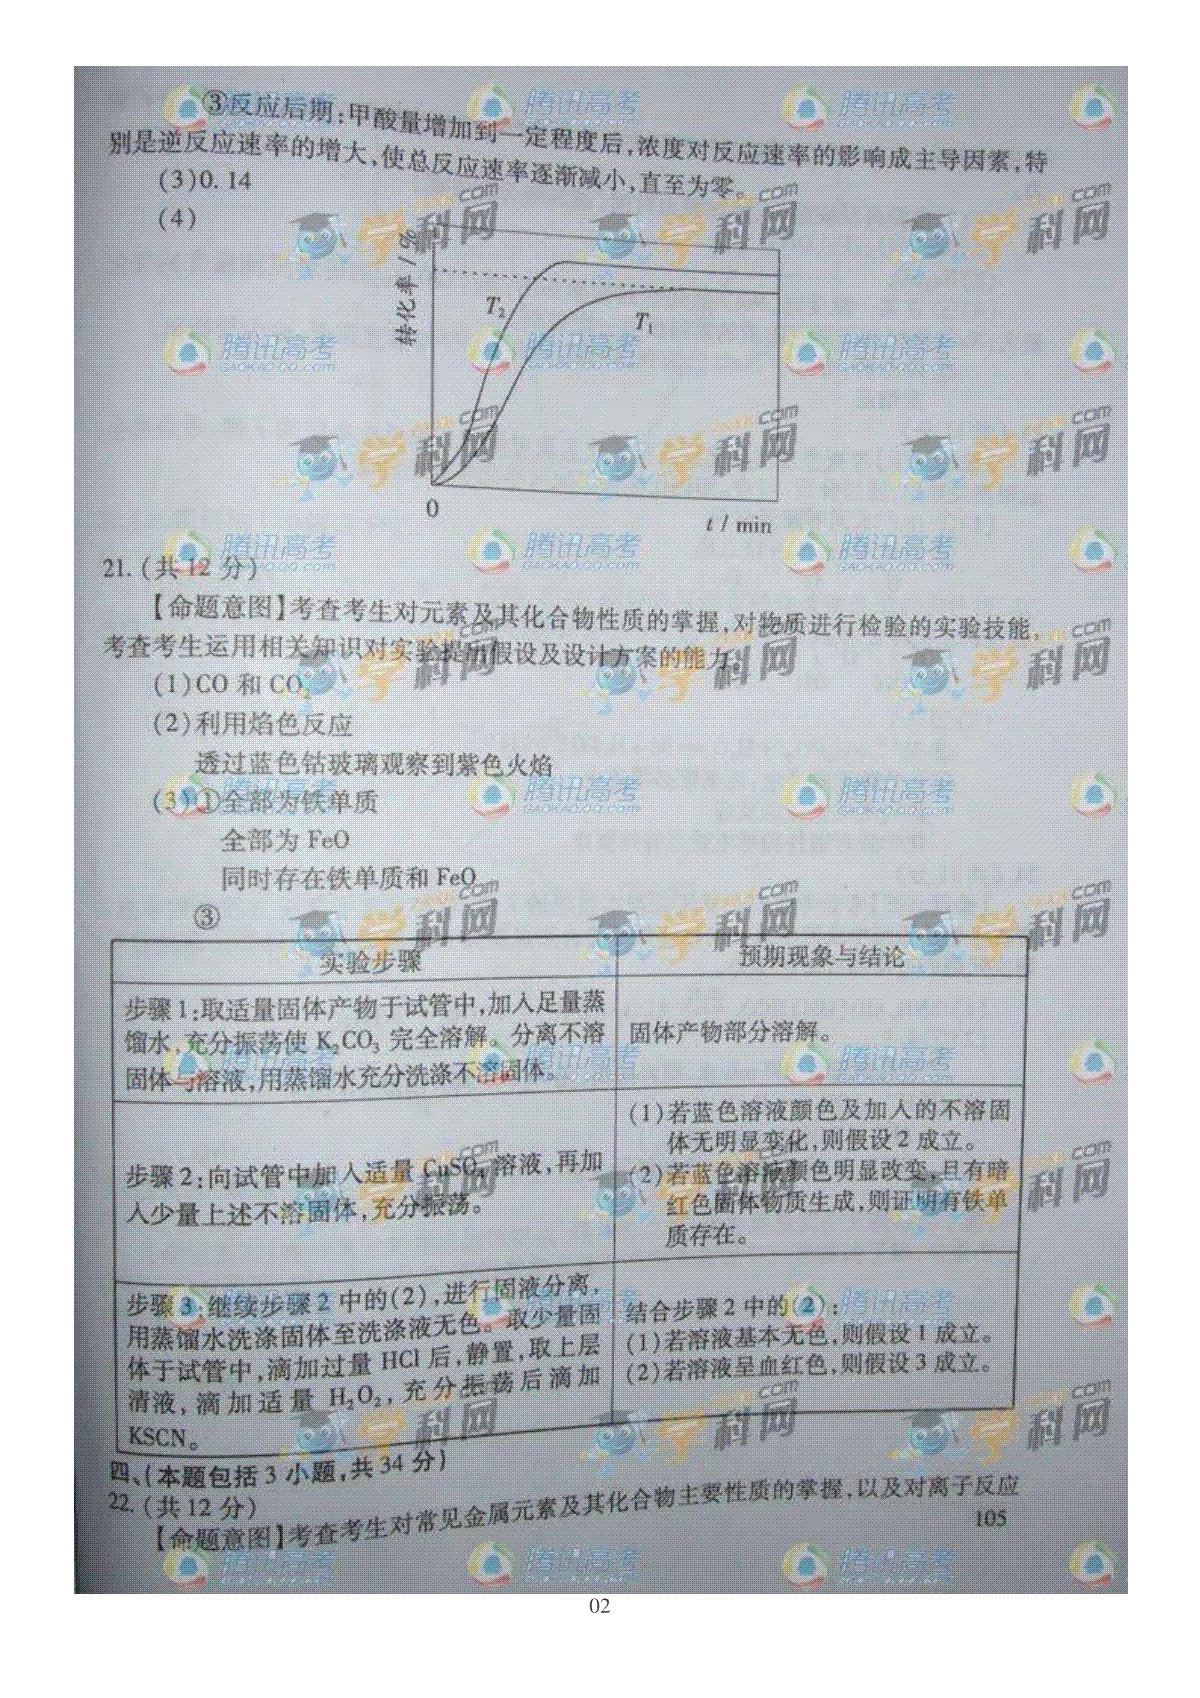 ③反应后期:甲酸量增加到一定程度后,浓度对反应速率的影响成主导因素,特
别是逆反应速率的增大,使总反应速率逐渐减小,直至为零。
(3)0.14
(4)
转化率/%
T₂
T₁
0
t/min
21.(共12分)
【命题意图】考查考生对元素及其化合物性质的掌握,对物质进行检验的实验技能,
考查考生运用相关知识对实验提出假设及设计方案的能力。
(1)CO 和 CO₂
(2)利用焰色反应
透过蓝色钴玻璃观察到紫色火焰
(3)①全部为铁单质
全部为 FeO
同时存在铁单质和 FeO
③
实验步骤
预期现象与结论
步骤1:取适量固体产物于试管中,加入足量蒸
馏水,充分振荡使 K₂CO₃ 完全溶解。分离不溶
固体与溶液,用蒸馏水充分洗涤不溶固体。
固体产物部分溶解。
步骤2:向试管中加入适量 CuSO₄ 溶液,再加
入少量上述不溶固体,充分振荡。
(1)若蓝色溶液颜色及加入的不溶固
体无明显变化,则假设2成立。
(2)若蓝色溶液颜色明显改变,且有暗
红色固体物质生成,则证明有铁单
质存在。
步骤3:继续步骤2中的(2),进行固液分离,
用蒸馏水洗涤固体至洗涤液无色。取少量固
体于试管中,滴加过量 HCl 后,静置,取上层
清液,滴加适量 H₂O₂,充分振荡后滴加
KSCN。
结合步骤2中的(2):
(1)若溶液基本无色,则假设1成立。
(2)若溶液呈血红色,则假设3成立。
四、(本题包括3小题,共34分)
22.(共12分)
【命题意图】考查考生对常见金属元素及其化合物主要性质的掌握,以及对离子反应
105
腾讯高考
GAOKAO.QQ.COM
学科网
.com
02